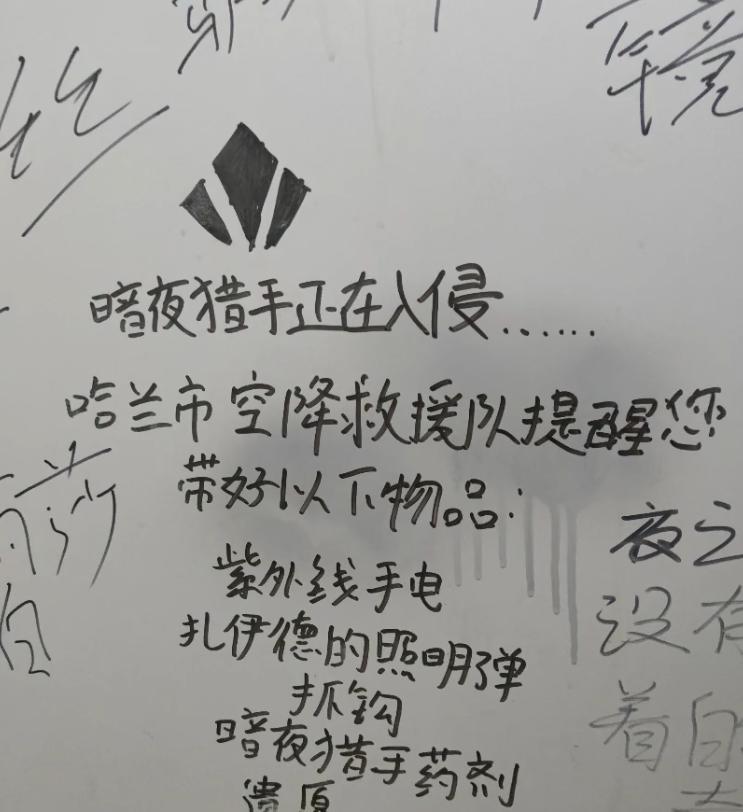 暗夜猎手正在入侵......
哈兰市空降救援队提醒您
带好以下物品:
紫外线手电
扎伊德的照明弹
抓钩
暗夜猎手药剂
夜之
没有
着自